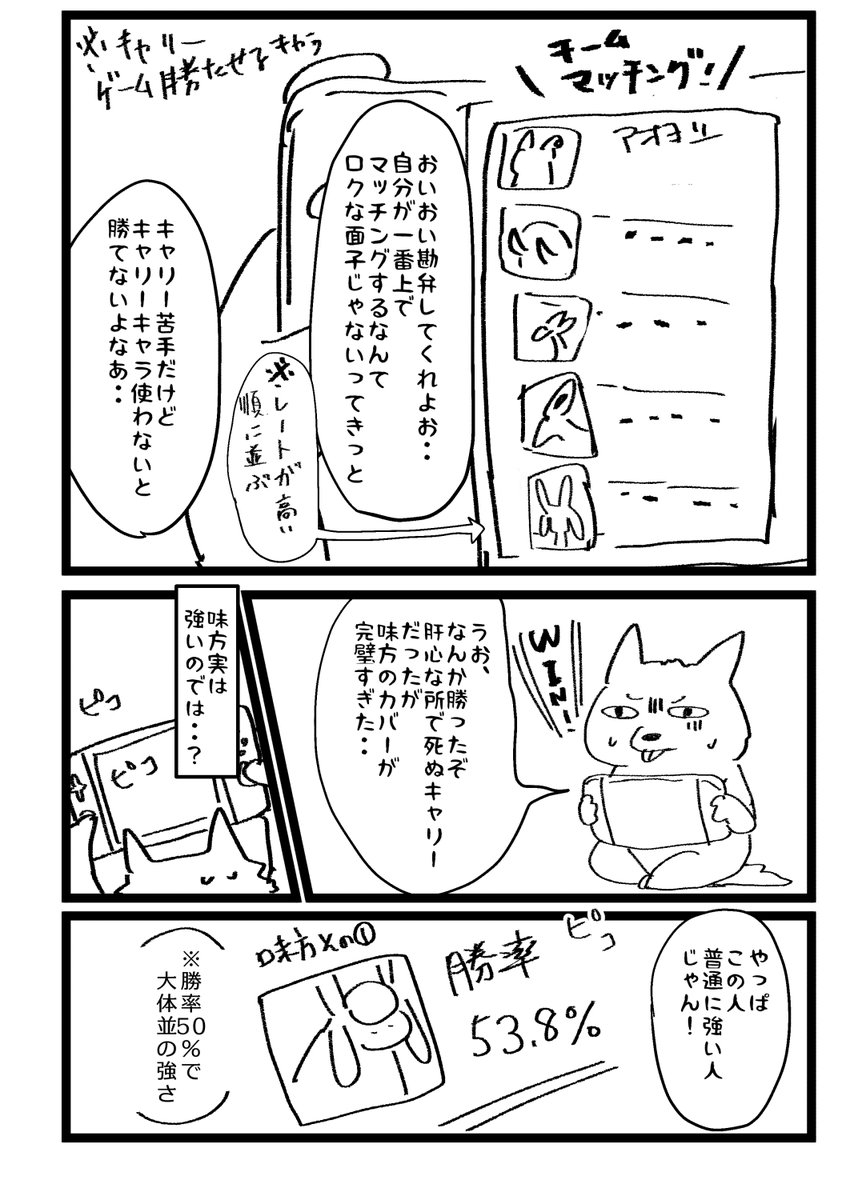 ＼チーム
マッチング！／
アオヨシ
おいおい勘弁してくれよお・・
自分が一番上で
マッチングするなんて
ロクな面子じゃないってきっと
※レートが高い
順に並ぶ
※キャリー
ゲーム勝たせるキャラ
キャリー苦手だけど
キャリーキャラ使わないと
勝てないよなあ・・
WIN!!
うお、
なんか勝ったぞ
肝心な所で死ぬキャリー
だったが
味方のカバーが
完璧すぎた・・
味方実は
強いのでは・・？
ピコ
ピコ
やっぱ
この人
普通に強い人
じゃん！
ピコ
勝率
53.8%
味方その①
※勝率50％で
大体並の強さ